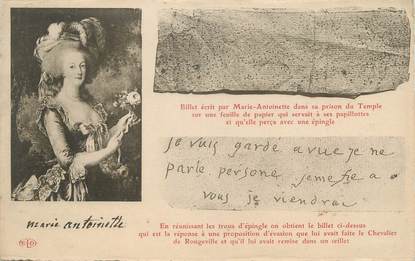 Billet écrit par Marie-Antoinette dans sa prison du Temple
sur une feuille de papier qui servait à ses papillottes
et qu'elle perça avec une épingle
je suis garde a vue je ne
parle persone jeme fie a
vous je viendrai
marie antoinette
En réunissant les trous d'épingle on obtient le billet ci-dessus
qui est la réponse à une proposition d'évasion que lui avait faite le Chevalier
de Rougeville et qu'il lui avait remise dans un œillet